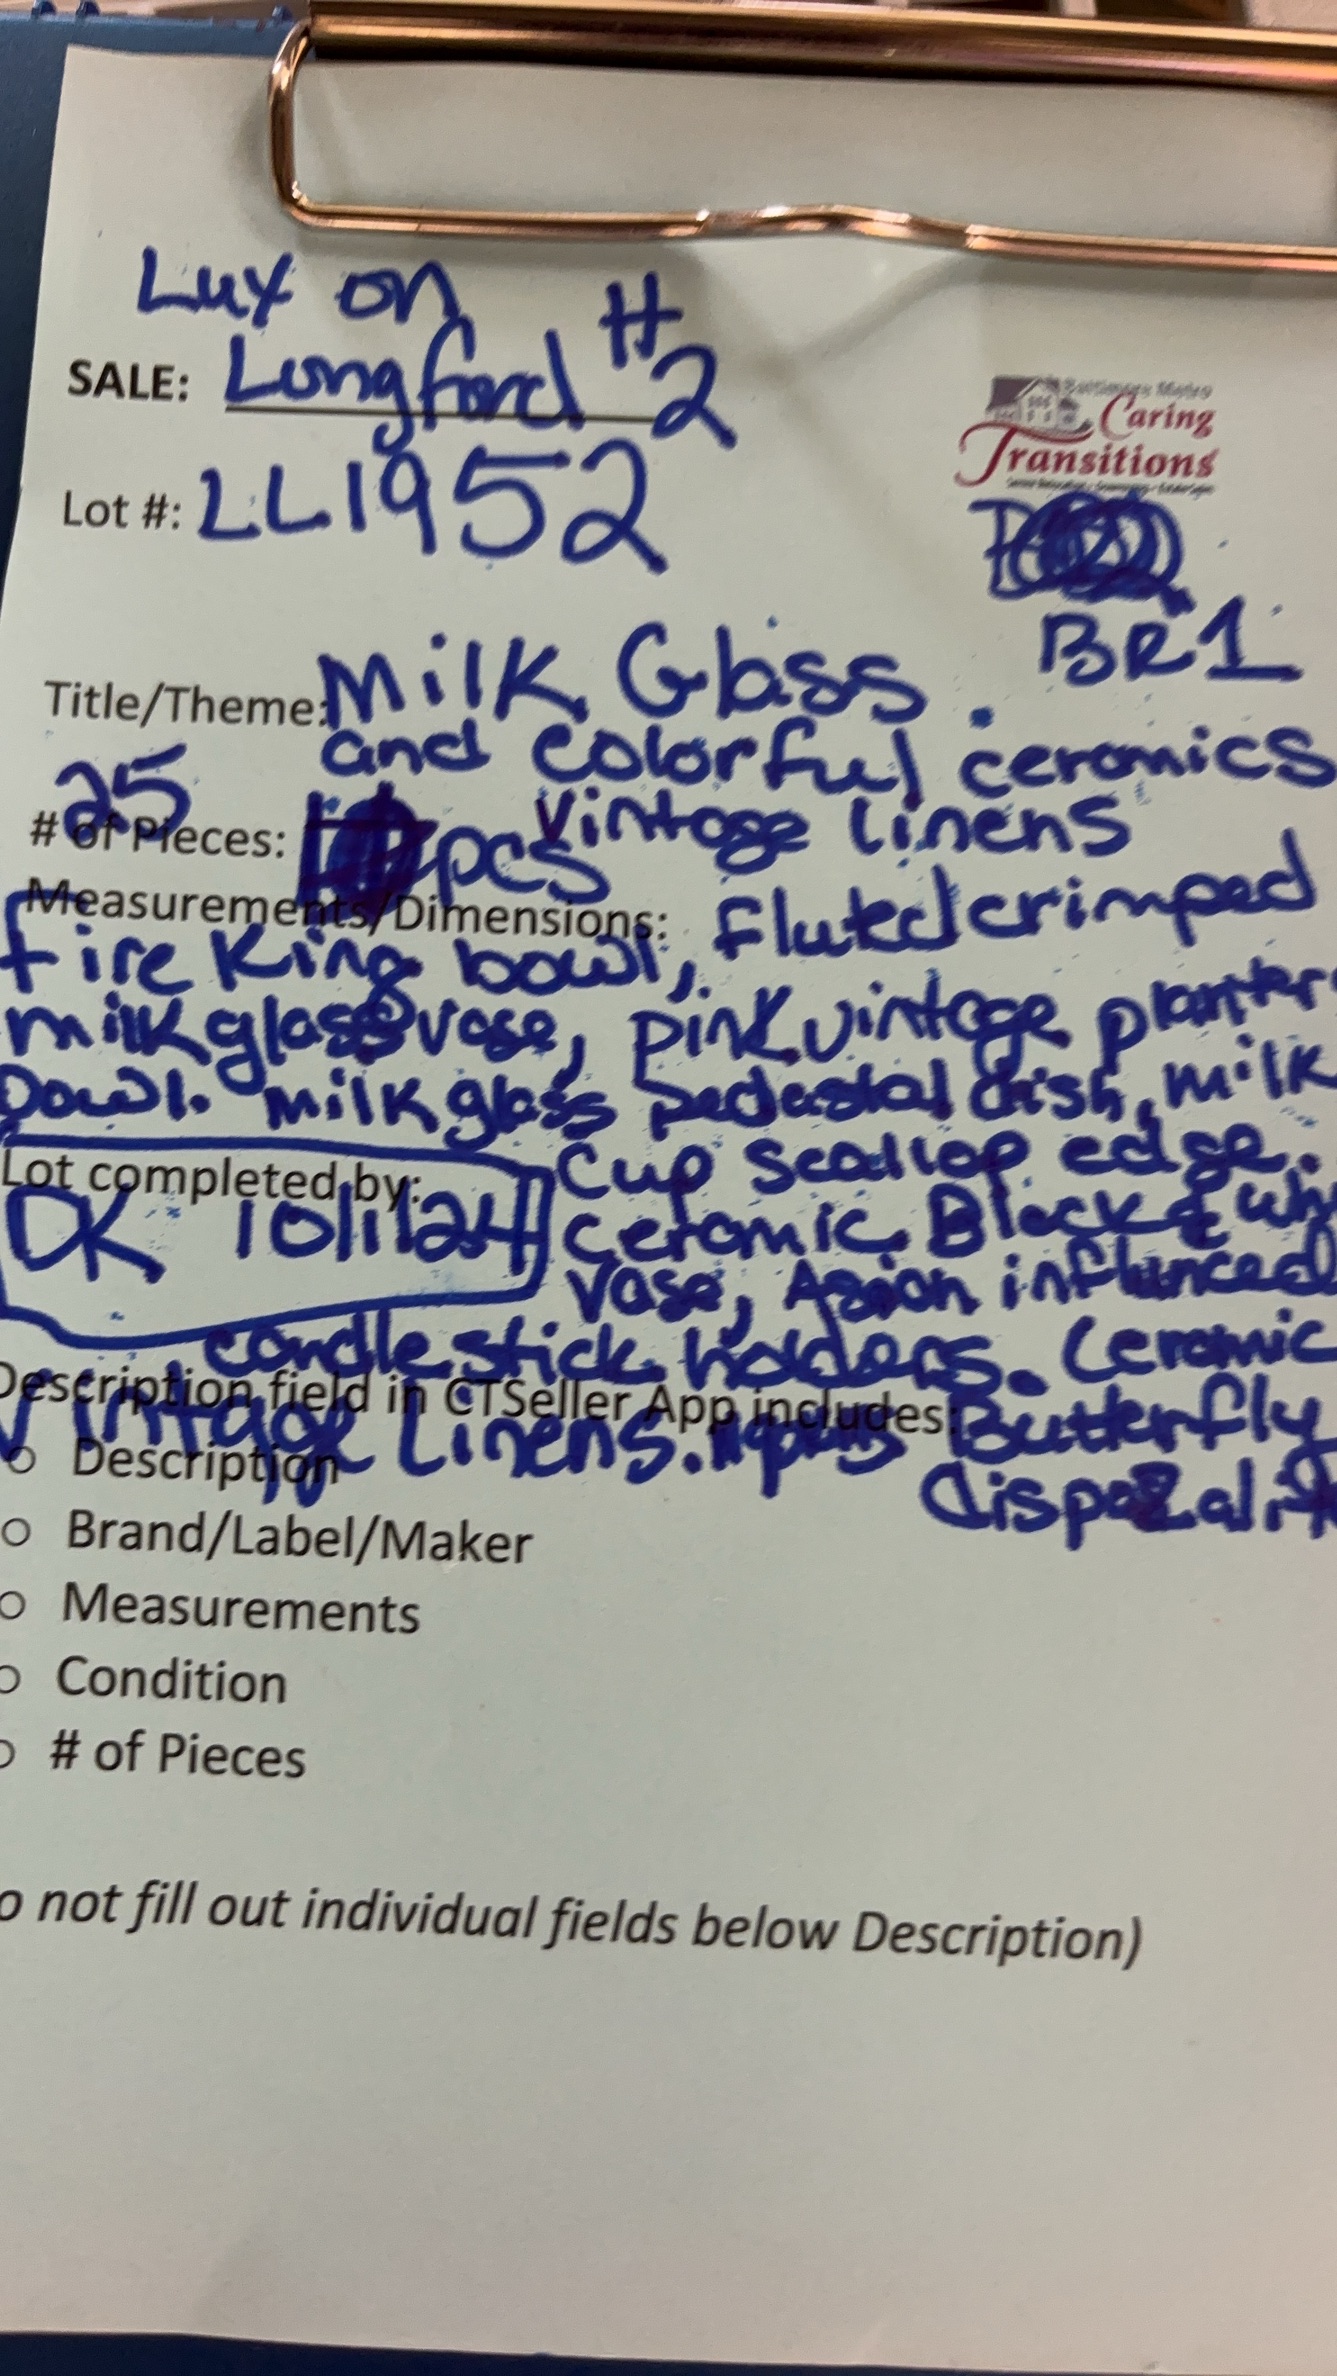 Lux on
SALE: Longford #2
Baltimore Metro
Caring
Transitions
Lot #: LL1952
BR1
Title/Theme: Milk Glass
and colorful ceramics
25 Vintage linens
# of Pieces: pcs
Measurements/Dimensions: fluted crimped
fire King bowl,
milk glass vase, pink vintage planter
bowl. milk glass pedestal dish, milk
Lot completed by: Cup scallop edge.
DK 10/1/24 ceramic Black &
vase, Asian influnced
candle stick holders. Ceramic
Description field in CTSeller App includes:
Vintage Linens. Butterfly
o Description
o Brand/Label/Maker
o Measurements
o Condition
o # of Pieces
o not fill out individual fields below Description)